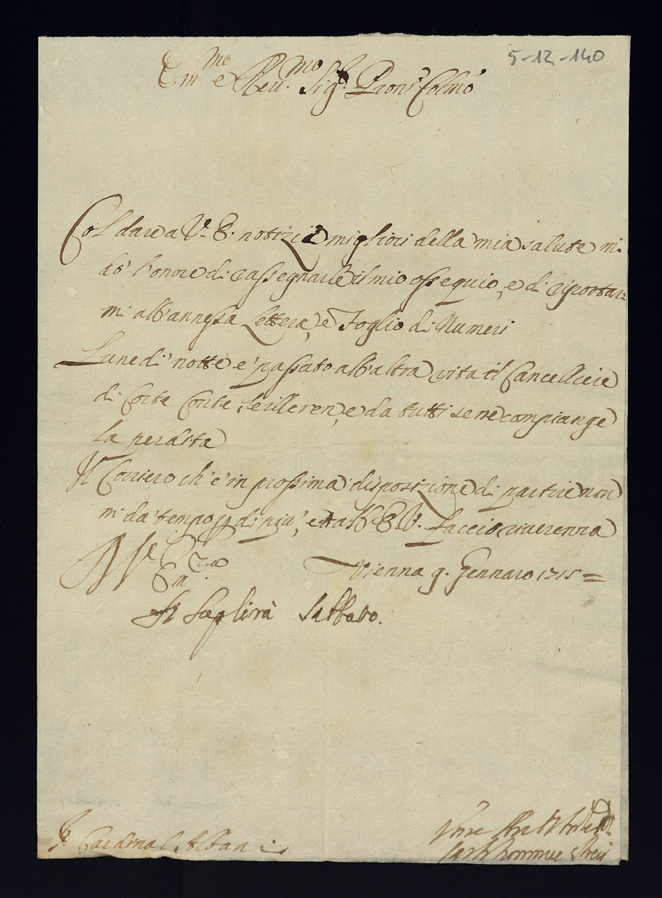 5-12-140
E.mo e Reu.mo Sig.r Pron.e Colmo
Col dare a V. E. notizie migliori della mia salute mi
hò l'onore di rassegnarle il mio ossequio, e di riportar
mi all'annessa Lettera, e Foglio di Numeri
Lunedì notte è passato all'altra vita il Cancelliere
di Corte Conte Seilleren, e da tutti se ne compiange
la perdita
Il Corriero ch'è in prossima disposizione di partire non
mi dà tempo di più, e all' E. V. faccio riuerenza
Vienna 9. Gennaro 1715
Si suplirà Sabbato.
Cardinal Albani